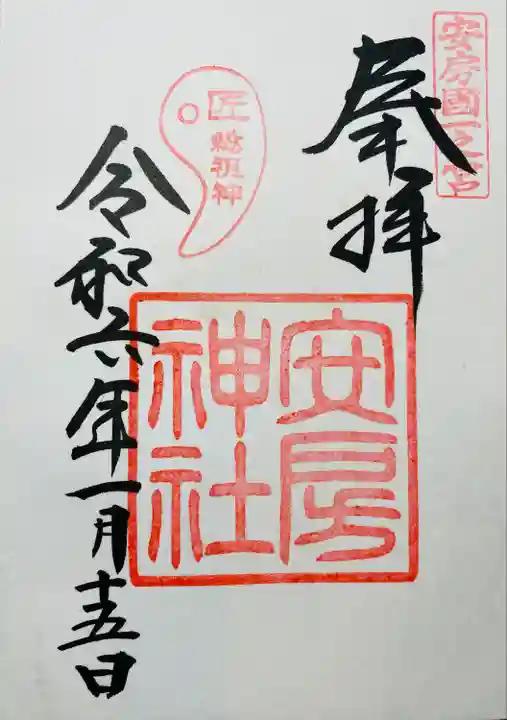 安房國一之宮
奉拝
安房
神社
匠
総祖神
令和六年一月十五日